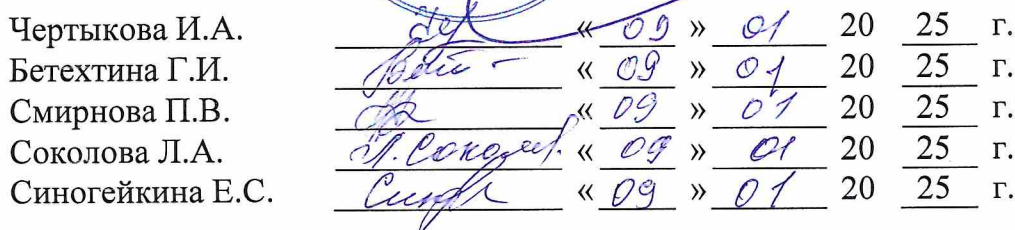 Чертыкова И.А. « 09 » 01 20 25 г.
Бетехтина Г.И. « 09 » 01 20 25 г.
Смирнова П.В. « 09 » 01 20 25 г.
Соколова Л.А. Л. Соколов. « 09 » 01 20 25 г.
Синогейкина Е.С. « 09 » 01 20 25 г.